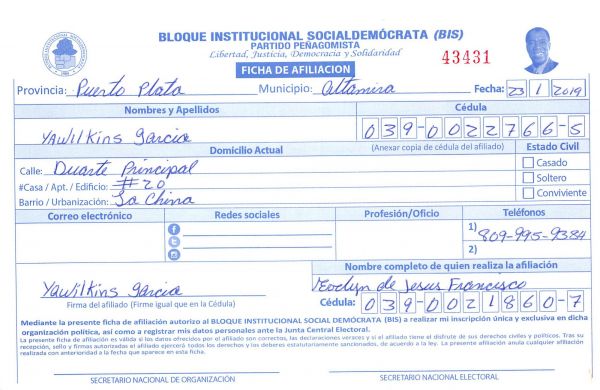 BLOQUE INSTITUCIONAL SOCIALDEMÓCRATA (BIS)
PARTIDO PEÑAGOMISTA
Libertad, Justicia, Democracia y Solidaridad
43431
FICHA DE AFILIACION
Provincia: Puerto Plata Municipio: Altamira Fecha: 23 1 2019
Nombres y Apellidos Cédula
Yawilkins Garcia 039-0022766-5
Domicilio Actual (Anexar copia de cédula del afiliado) Estado Civil
Calle: Duarte Principal Casado
#Casa / Apt. / Edificio: #20 Soltero
Barrio / Urbanización: La China Conviviente
Correo electrónico Redes sociales Profesión/Oficio Teléfonos
1) 809-995-9384
2)
Nombre completo de quien realiza la afiliación
Yawilkins garcia Evelyn de Jesus Francisco
Firma del afiliado (Firme igual que en la Cédula) Cédula: 039-0021860-7
Mediante la presente ficha de afiliación autorizo al BLOQUE INSTITUCIONAL SOCIAL DEMÓCRATA (BIS) a realizar mi inscripción única y exclusiva en dicha
organización política, así como a registrar mis datos personales ante la Junta Central Electoral.
La presente ficha de afiliación es válida si los datos ofrecidos por el afiliado son correctos, las declaraciones veraces y si el afiliado tiene el disfrute de sus derechos civiles y políticos. Tras su
recepción, sello y firmas autorizadas el afiliado ejercerá todos los derechos y los deberes estatutariamente sancionados, de acuerdo a la ley. La presente afiliación anula cualquier afiliación
realizada con anterioridad a la fecha que aparece en esta ficha.
SECRETARIO NACIONAL DE ORGANIZACIÓN SECRETARIO NACIONAL ELECTORAL